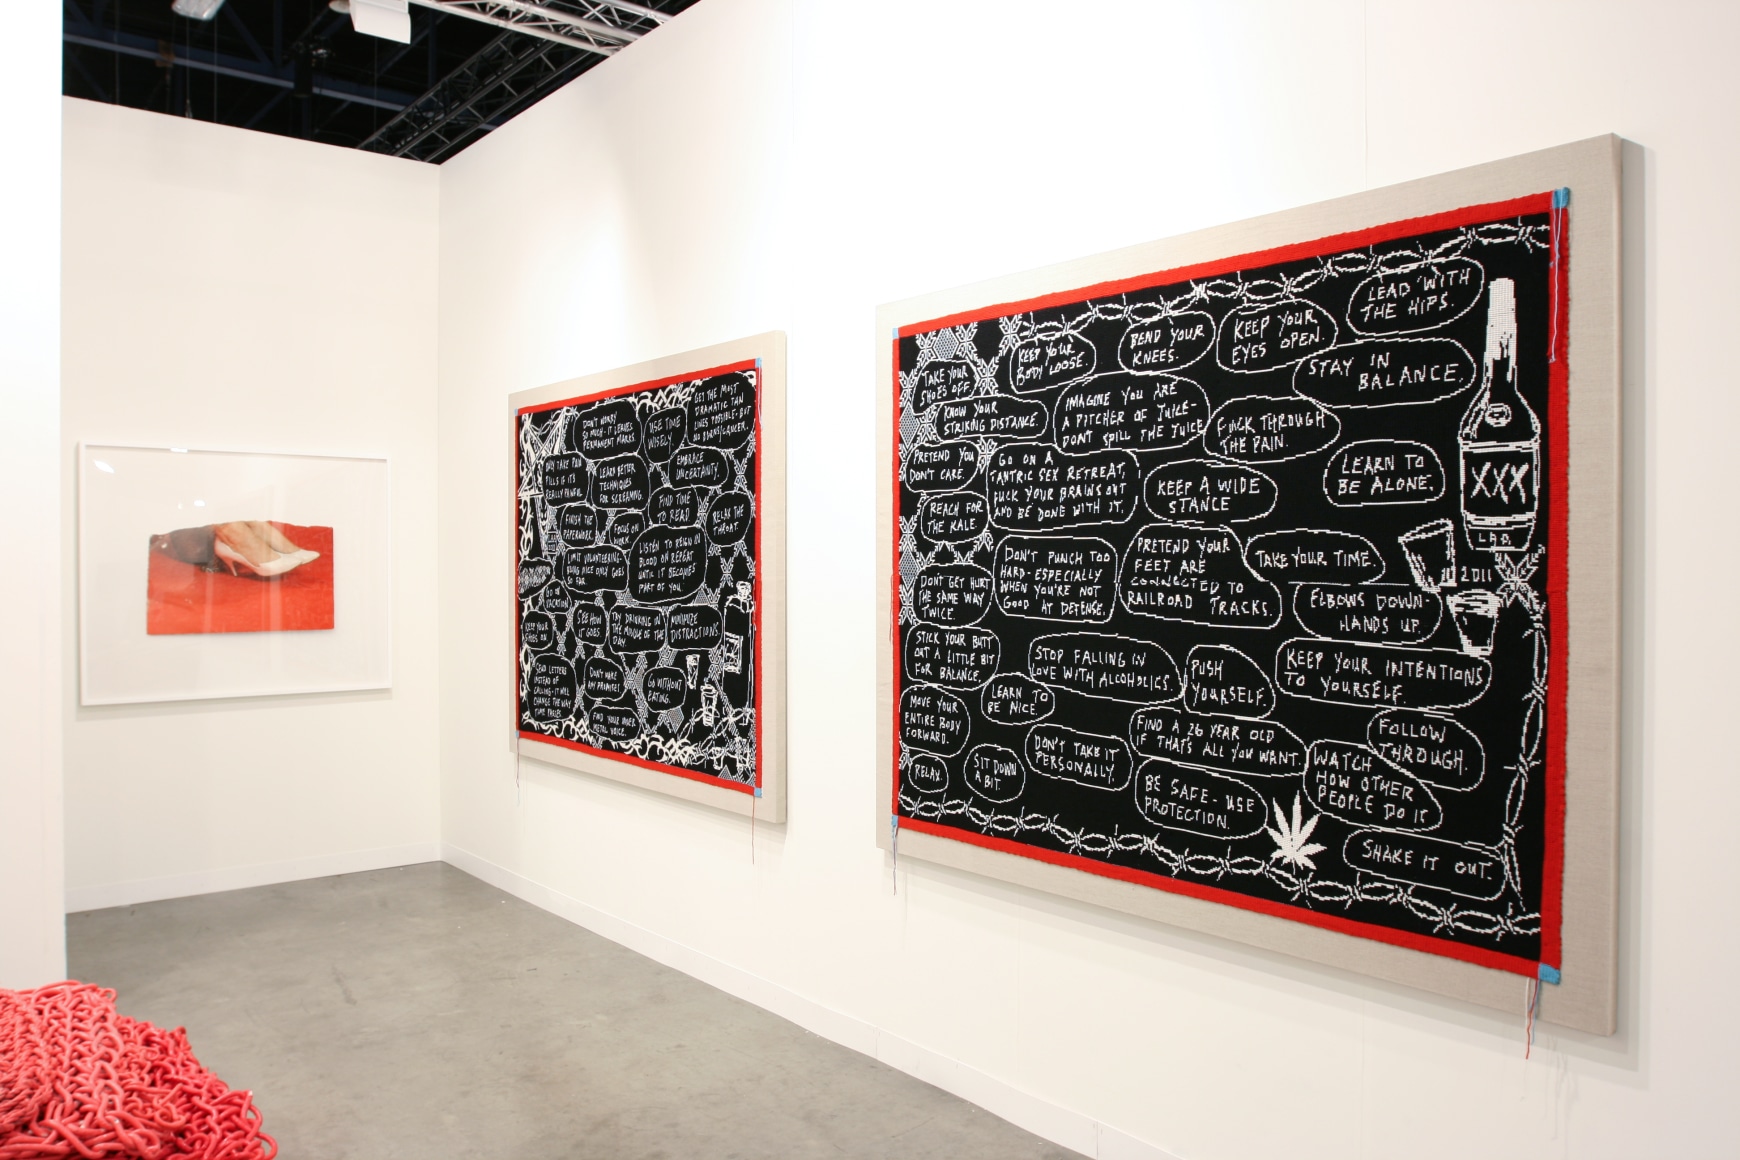 DON'T WORRY
SO MUCH - IT LEAVES
PERMANENT MARKS.
USE TIME
WISELY.
GET THE MOST
DRAMATIC TAN
LINES POSSIBLE - BUT
NO BURNS/CANCER.
ONLY TAKE PAIN
PILLS IF IT'S
REALLY PAINFUL.
LEARN BETTER
TECHNIQUES
FOR SCREAMING.
EMBRACE
UNCERTAINTY.
FIND TIME
TO READ
RELAX THE
THROAT.
FINISH THE
PAPERWORK.
FOCUS ON
WORK.
LIMIT VOLUNTEERING -
BEING NICE ONLY GOES
SO FAR.
LISTEN TO REIGN IN
BLOOD ON REPEAT
UNTIL IT BECOMES
PART OF YOU.
GO ON
VACATION
KEEP YOUR
SHOES ON
SEE HOW
IT GOES.
TRY DRINKING IN
THE MIDDLE OF THE
DAY.
MINIMIZE
DISTRACTIONS.
SEND LETTERS
INSTEAD OF
CALLING - IT WILL
CHANGE THE WAY
TIME PASSES.
DON'T MAKE
ANY PROMISES!
GO WITHOUT
EATING.
FIND YOUR INNER
METAL VOICE.
TAKE YOUR
SHOES OFF.
KEEP YOUR
BODY LOOSE.
BEND YOUR
KNEES.
KEEP YOUR
EYES OPEN.
LEAD WITH
THE HIPS.
STAY IN
BALANCE.
KNOW YOUR
STRIKING DISTANCE.
IMAGINE YOU ARE
A PITCHER OF JUICE -
DON'T SPILL THE JUICE
FUCK THROUGH
THE PAIN.
PRETEND YOU
DON'T CARE.
GO ON A
TANTRIC SEX RETREAT,
FUCK YOUR BRAINS OUT
AND BE DONE WITH IT.
KEEP A WIDE
STANCE
LEARN TO
BE ALONE.
XXX
REACH FOR
THE KALE.
DON'T PUNCH TOO
HARD - ESPECIALLY
WHEN YOU'RE NOT
GOOD AT DEFENSE.
PRETEND YOUR
FEET ARE
CONNECTED TO
RAILROAD TRACKS.
TAKE YOUR TIME.
2011
DON'T GET HURT
THE SAME WAY
TWICE.
ELBOWS DOWN -
HANDS UP.
STICK YOUR BUTT
OUT A LITTLE BIT
FOR BALANCE.
STOP FALLING IN
LOVE WITH ALCOHOLICS.
PUSH
YOURSELF.
KEEP YOUR INTENTIONS
TO YOURSELF.
MOVE YOUR
ENTIRE BODY
FORWARD.
LEARN TO
BE NICE.
FIND A 26 YEAR OLD
IF THAT'S ALL YOU WANT.
FOLLOW
THROUGH.
RELAX.
SIT DOWN
A BIT.
DON'T TAKE IT
PERSONALLY.
BE SAFE - USE
PROTECTION.
WATCH
HOW OTHER
PEOPLE DO IT
SHAKE IT OUT.